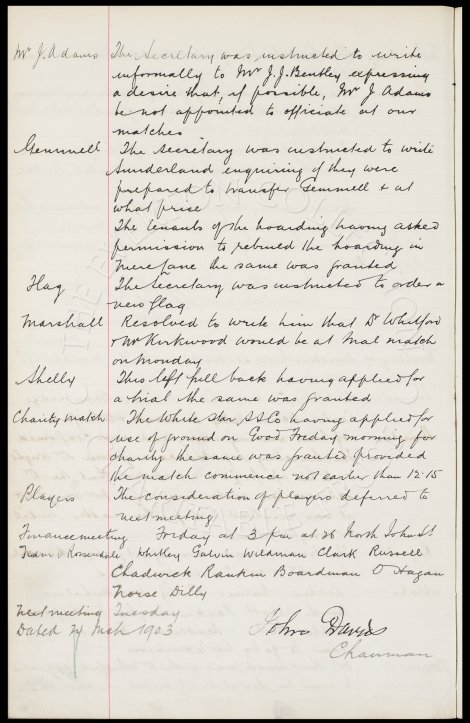 Mr J. Adams The Secretary was instructed to write
informally to Mr J. J. Bentley expressing
a desire that, if possible, Mr J Adams
be not appointed to officiate at our
matches
Gemmell The Secretary was instructed to write
Sunderland enquiring if they were
prepared to transfer Gemmell & at
what price
The tenants of the hoarding having asked
permission to rebuild the hoarding in
Mere Lane the same was granted
Flag The Secretary was instructed to order a
new flag
Marshall Resolved to write him that Dr Whitford
& Mr Kirkwood would be at match
on Monday
Shelly This left full back having applied for
a trial the same was granted
Charity match The White Star SS Co having applied for
use of ground on Good Friday morning for
charity the same was granted provided
the match commence not earlier than 12.15
Players The consideration of players deferred to
next meeting
Finance meeting Friday at 3 pm at 26 North John St
Team v Rossendale Whitley Balmer Wildman Clark Russell
Chadwick Rankin Boardman O'Hagan
Dilly
Next meeting Tuesday
Dated 24 Mch 1903 John Davies
Chairman